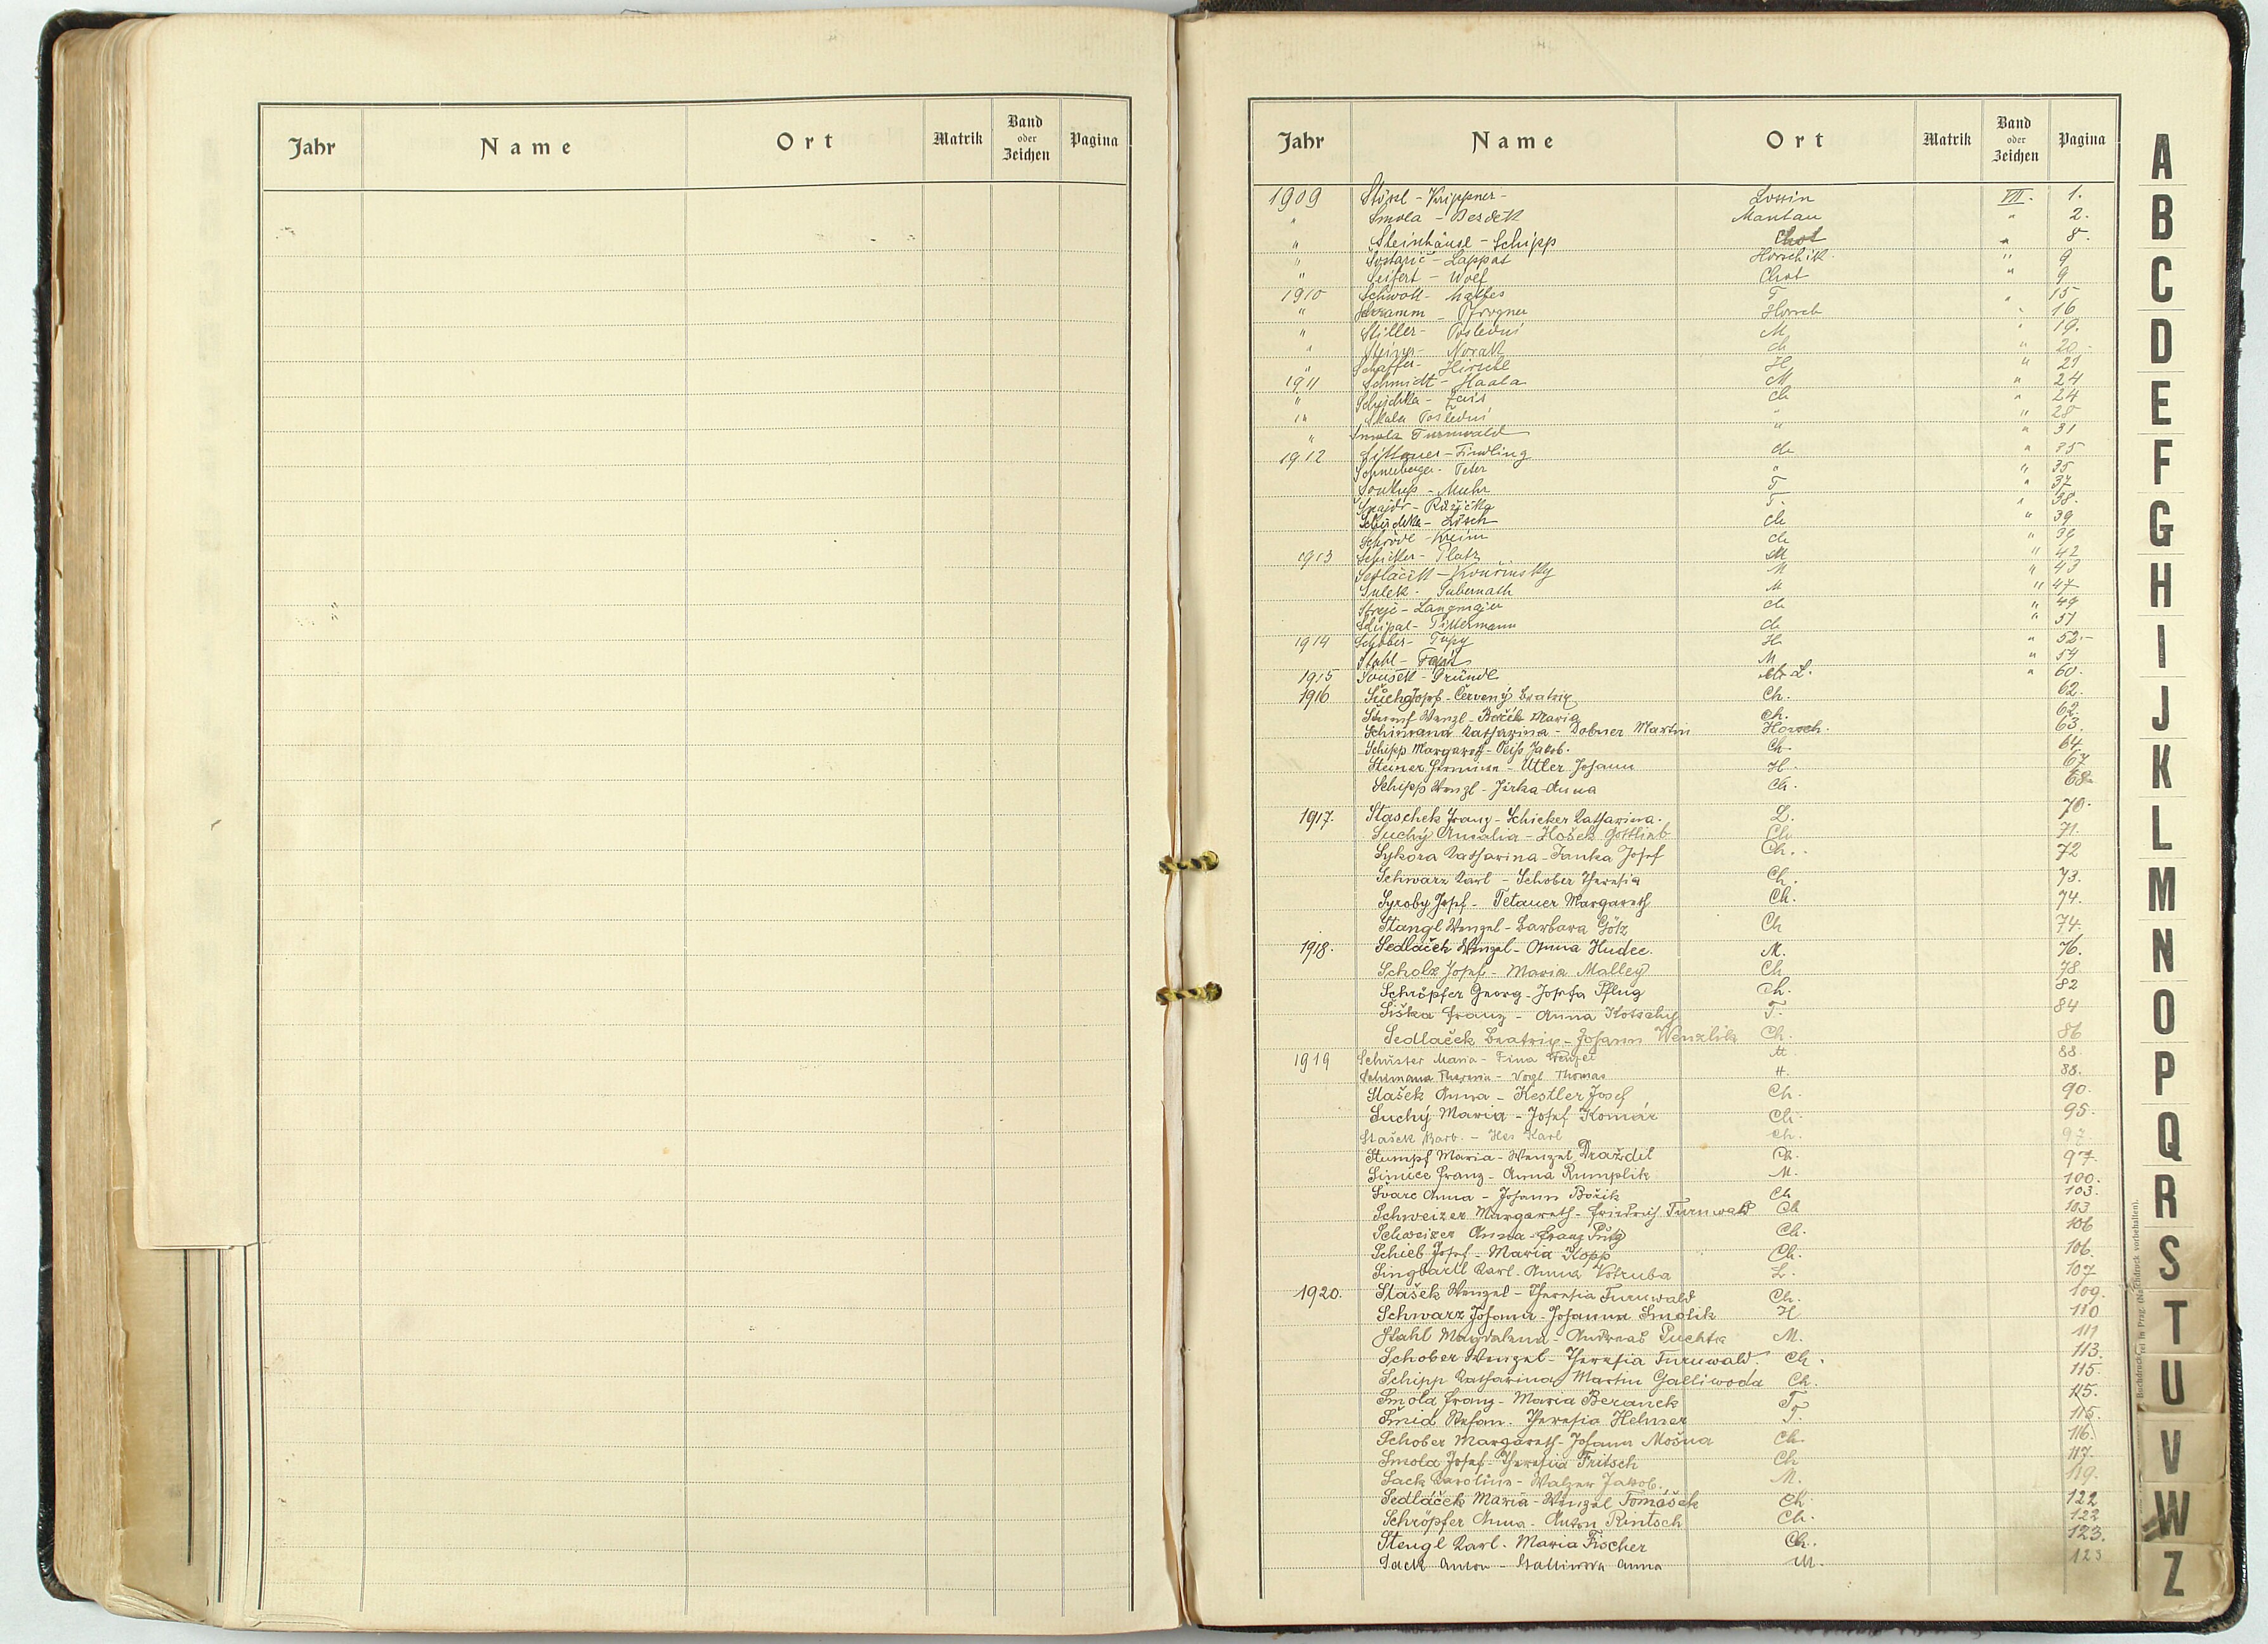 Jahr Name Ort Matrik Band oder Zeichen Pagina
Jahr Name Ort Matrik Band oder Zeichen Pagina
1909 Stössl - Krippner - Lossin VII. 1.
" Smola - Bezděk Mantau " 2.
" Steinhäusl - Schipp Chot " 8.
" Šoštarič - Lappat Horschik. " 9
" Seifert - Wolf Chot " 9
1910 Schwoll - Mattes T " 15
" Schramm - Pfrogner Horsch " 16
" Stiller - Poslední M " 19.
" Steiner - Novak Ch " 20 -
" Schaffer - Hirschl H " 21
1911 Schmidt - Haala M " 24
" Schischka - Zeis Ch " 24
" Skala Poslední " " 28
" Smola Turnwald " " 31
1912 Sittauer - Findling Ch " 35
Schneeberger - Peter " " 35
Soukup - Muhr T " 37
Šnajdr - Růžička T. " 38.
Schischka - Lösch Ch " 39
Schrödl - Kreim Ch " 39
1913 Schitter - Platz M " 42
Sedláček - Kouřimsky M " 43
Sulek - Tabernath M " 47
Strejc - Langmajer Ch " 49
Schipal - Pittermann Ch " 51
1914 Schober - Tupy H " 52.-
Stahl - Fajst M " 54
1915 Soušek - Gründl L. " 60.
1916 Suchý Josef - Červený Beatrix Ch. 62.
Stumpf Wenzl - Bočék Maria Ch. 62.
Schimana Katharina - Dobner Martin Horsch. 63.
Schipp Margareth - Reiß Jakob. Ch. 64.
Steiner Hermine - Utler Johann H. 67
Schipp Wenzl - Jirka Anna Ch. 68.
1917. Staschek Franz - Schicker Katharina. L. 70.
Suchý Amalia - Hošek Gottlieb Ch. 71.
Sykora Katharina - Janka Josef Ch. - 72
Schwarz Karl - Schober Theresia Ch. 73.
Syroby Josef - Tetauer Margareth Ch. 74.
Stangl Wenzel - Barbara Götz Ch 74.
1918. Sedlaček Wenzel - Anna Hudec. M. 76.
Scholz Josef - Maria Malley Ch 78
Schröpfer Georg - Josefa Pflug Ch. 82
Šiška Franz - Anna Kotschy T. 84
Sedlaček Beatrix - Johann Wenzlik Ch. 86
1919 Schuster Maria - Fina Wenzel M 88.
Schimana Theresia - Vogl Thomas H. 88.
Stašek Anna - Kestler Josef Ch. 90.
Suchý Maria - Josef Komár Ch. 95.
Stašek Barb. - Hes Karl Ch. 97.
Stumpf Maria - Wenzel Draždil Ch. 97.
Simice Franz - Anna Rumplik M. 100.
Švarc Anna - Johann Božik Ch 103.
Schweizer Margareth - Friedrich Turnwald Ch 103
Schweizer Anna - Franz Putz Ch. 106
Schieb Josef - Maria Kopp Ch. 106.
Singbartl Karl. Anna Votruba L. 107
1920. Stašek Wenzel - Theresia Turnwald Ch. 109.
Schwarz Johann - Johanna Smolik H 110
Stahl Magdalena - Andreas Puchta M. 111
Schober Wenzel - Theresia Turnwald. Ch. 113.
Schipp Katharina, Martin Galliwoda Ch. 115.
Smola Franz - Maria Beranek T. 115.
Šmid Stefan. Theresia Helmer T. 115.
Schober Margareth - Johann Mošna Ch. 116.
Smola Josef - Theresia Fritsch Ch 117.
Sack Karoline - Walzer Jakob. M. 119.
Sedláček Maria - Wenzel Tomášek Ch. 122
Schröpfer Anna - Anton Rintsch Ch. 122
Stengl Karl. Maria Fischer Ch. 123.
Sack Anton - Anna M. 123
A
B
C
D
E
F
G
H
I
J
K
L
M
N
O
P
Q
R
S
T
U
V
W
Z
in Prag. (Nachdruck vorbehalten).